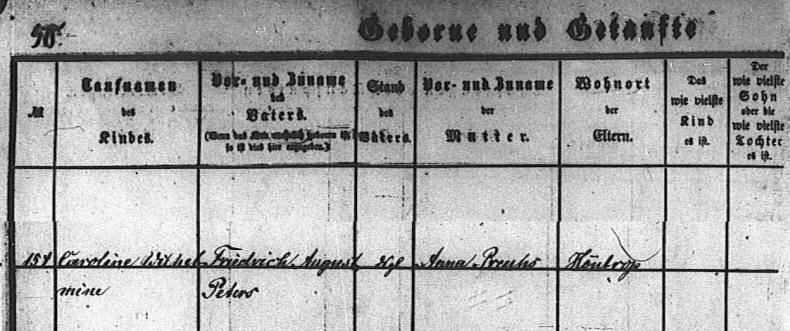 Geborne und Getaufte
№
Taufnamen
des
Kindes.
Vor- und Zuname
des
Vaters.
(Wenn das Kind unehelich geboren ist,
so ist dies hier anzugeben.)
Stand
des
Vaters.
Vor- und Zuname
der
Mutter.
Wohnort
der
Eltern.
Das
wie vielste
Kind
es ist.
Der
wie vielste
Sohn
oder die
wie vielste
Tochter
es ist.
154 Caroline Wilhel Friedrich August Anna Höntrop
mine Peters